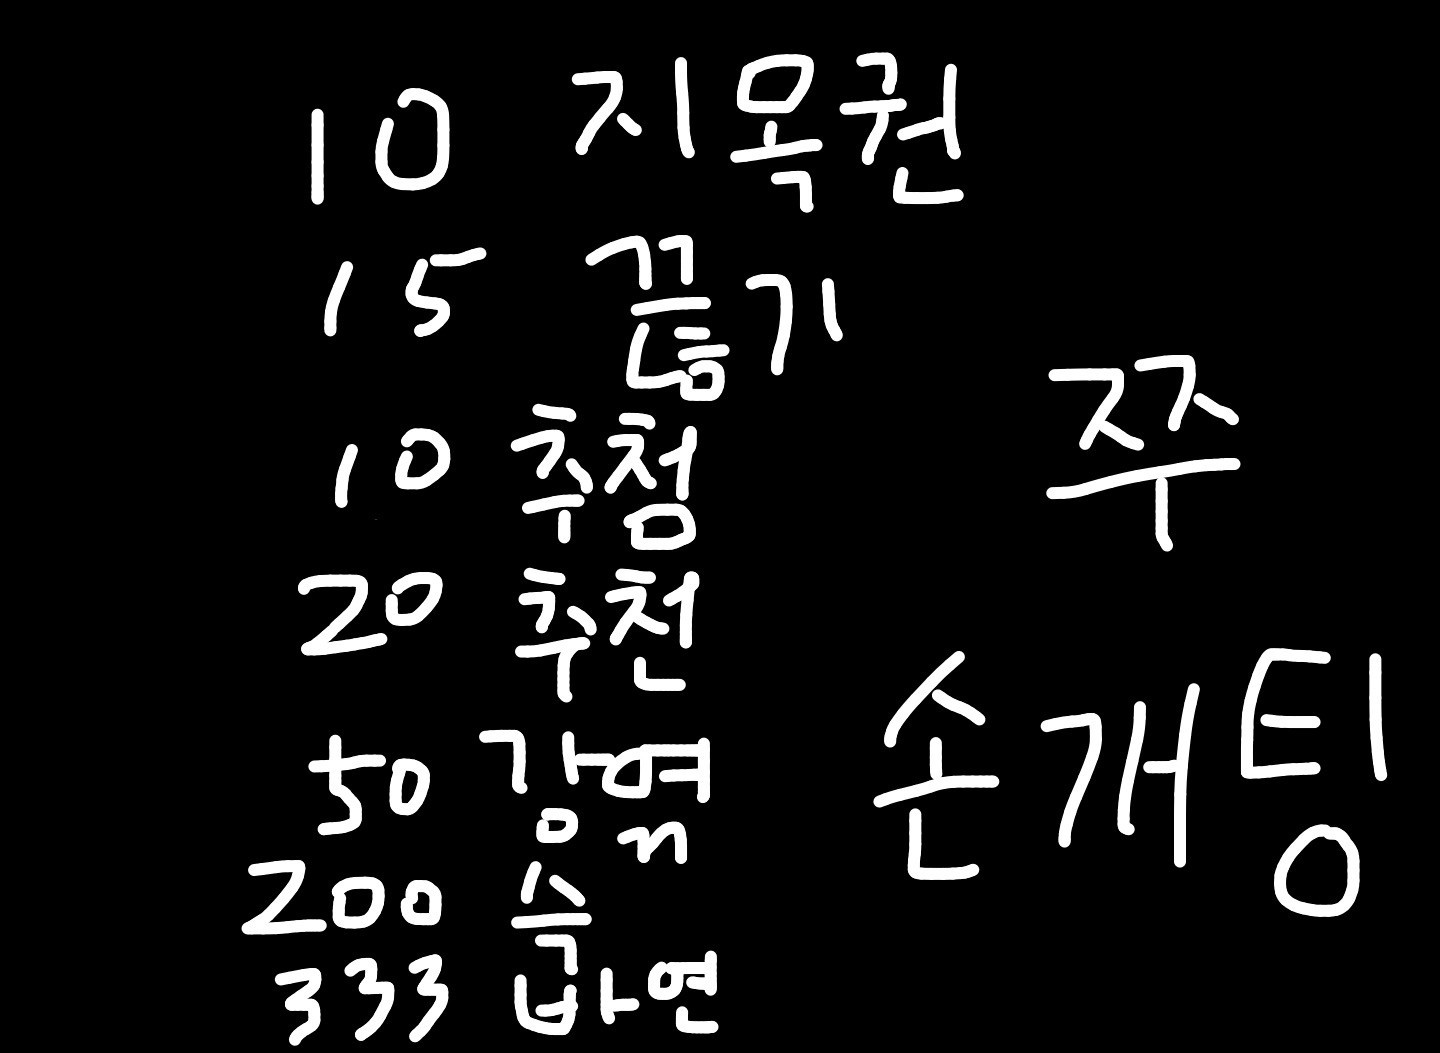 10 지목권
15 끊기
10 추첨
20 추천
50 강엮
200 슥
333 바연
쭈
손개팅